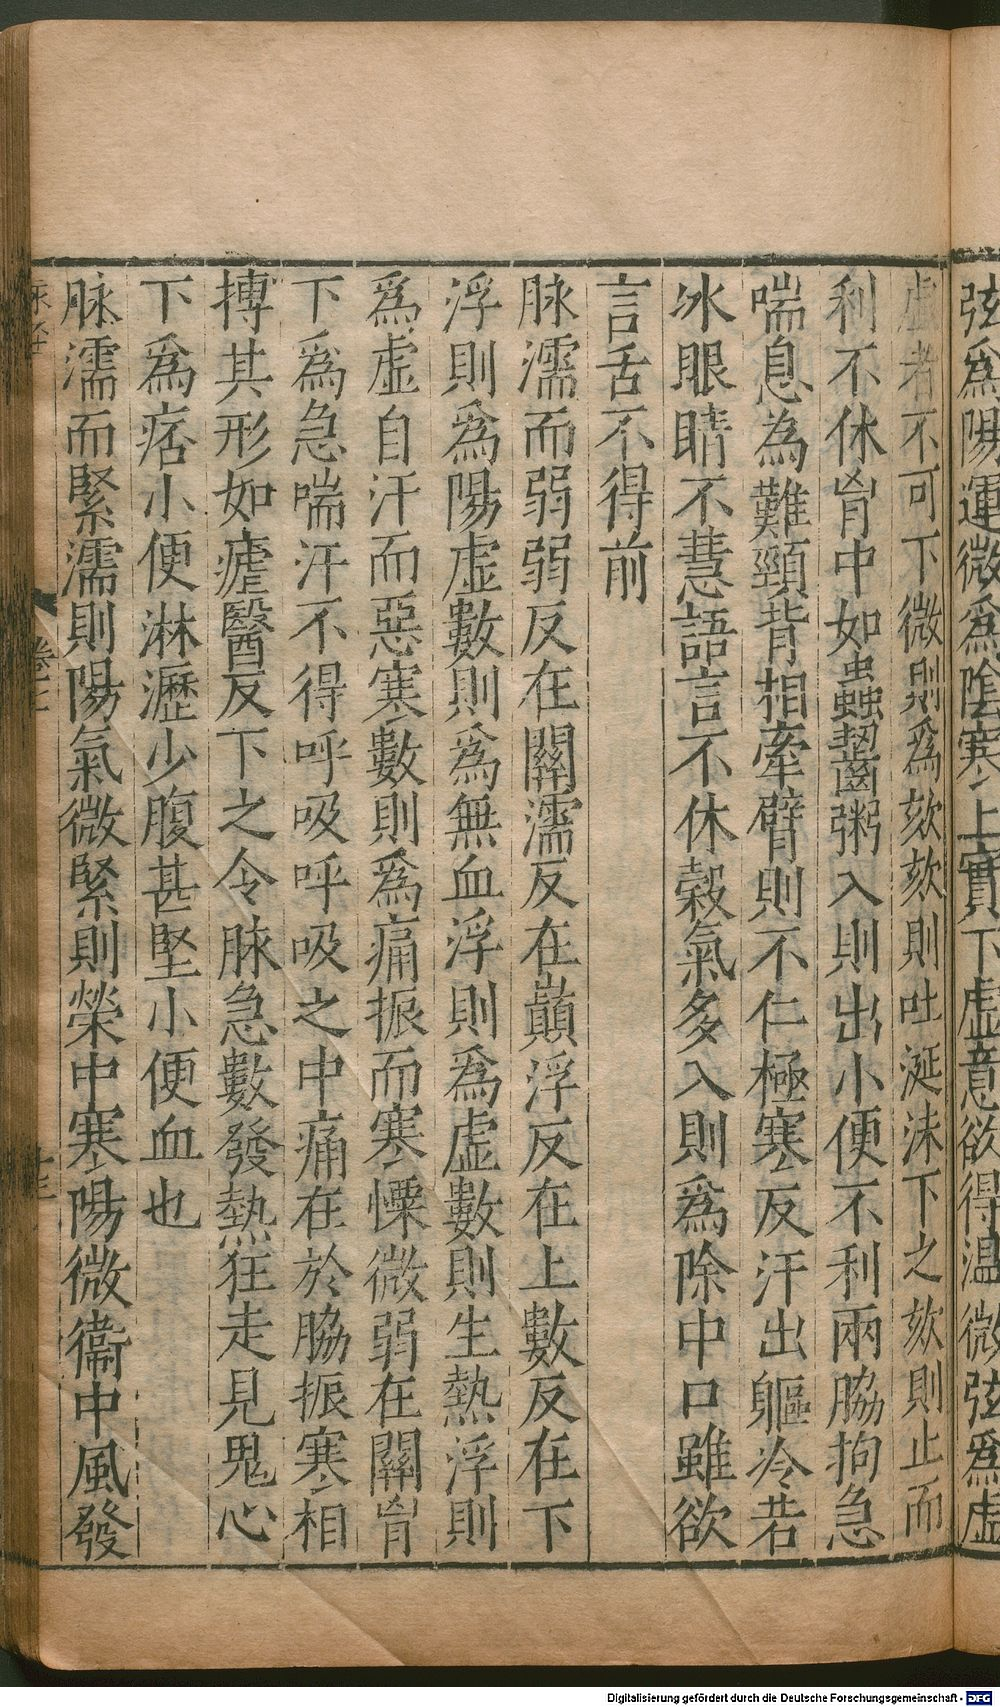 弦爲陽運微爲陰寒上實下虛意欲得溫微弦爲虛
虛者不可下微則爲欬欬則吐涎沫下之欬則止而
利不休胷中如蟲齧粥入則出小便不利兩脇拘急
喘息為難頸背相牽臂則不仁極寒反汗出軀冷若
冰眼睛不慧語言不休穀氣多入則爲除中口雖欲
言舌不得前
脉濡而弱弱反在關濡反在巔浮反在上數反在下
浮則爲陽虛數則爲無血浮則爲虛數則生熱浮則
爲虛自汗而惡寒數則爲痛振而寒慄微弱在關胷
下爲急喘汗不得呼吸呼吸之中痛在於脇振寒相
搏其形如瘧醫反下之令脉急數發熱狂走見鬼心
下爲痞小便淋瀝少腹甚堅小便血也
脉濡而緊濡則陽氣微緊則榮中寒陽微衞中風發
脉經 卷七 十三
Digitalisierung gefördert durch die Deutsche Forschungsgemeinschaft - DFG